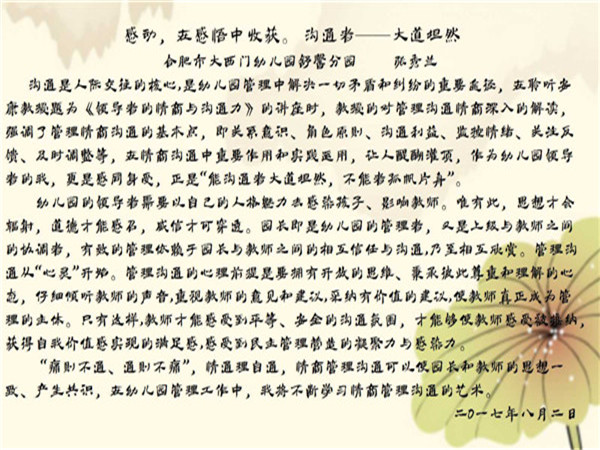 感动，在感悟中收获。 沟通者——大道坦然
合肥市大西门幼儿园舒馨分园 张秀兰
沟通是人际交往的核心,是幼儿园管理中解决一切矛盾和纠纷的重要途径，在聆听安
康教授题为《领导者的情商与沟通力》的讲座时，教授的对管理沟通情商深入的解读，
强调了管理情商沟通的基本点，即关系意识、角色原则、沟通利益、监控情绪、关注反
馈、及时调整等，在情商沟通中重要作用和实践运用，让人醍醐灌顶，作为幼儿园领导
者的我，更是感同身受，正是“能沟通者大道坦然，不能者孤帆片舟”。
幼儿园的领导者需要以自己的人格魅力去感染孩子、影响教师。唯有此，思想才会
辐射，道德才能感召，威信才可穿透。园长即是幼儿园的管理者，又是上级与教师之间
的协调者，有效的管理依赖于园长与教师之间的相互信任与沟通,乃至相互欣赏。管理沟
通从“心灵”开始。管理沟通的心理前提是要拥有开放的思维、秉承彼此尊重和理解的心
态，仔细倾听教师的声音,重视教师的意见和建议,采纳有价值的建议,使教师真正成为管
理的主体。只有这样,教师才能感受到平等、安全的沟通氛围，才能够使教师感受被接纳,
获得自我价值感实现的满足感,感受到民主管理营造的凝聚力与感染力。
“痛则不通、通则不痛”，情通理自通，情商管理沟通可以使园长和教师的思想一
致、产生共识，在幼儿园管理工作中，我将不断学习情商管理沟通的艺术。
二〇一七年八月二日